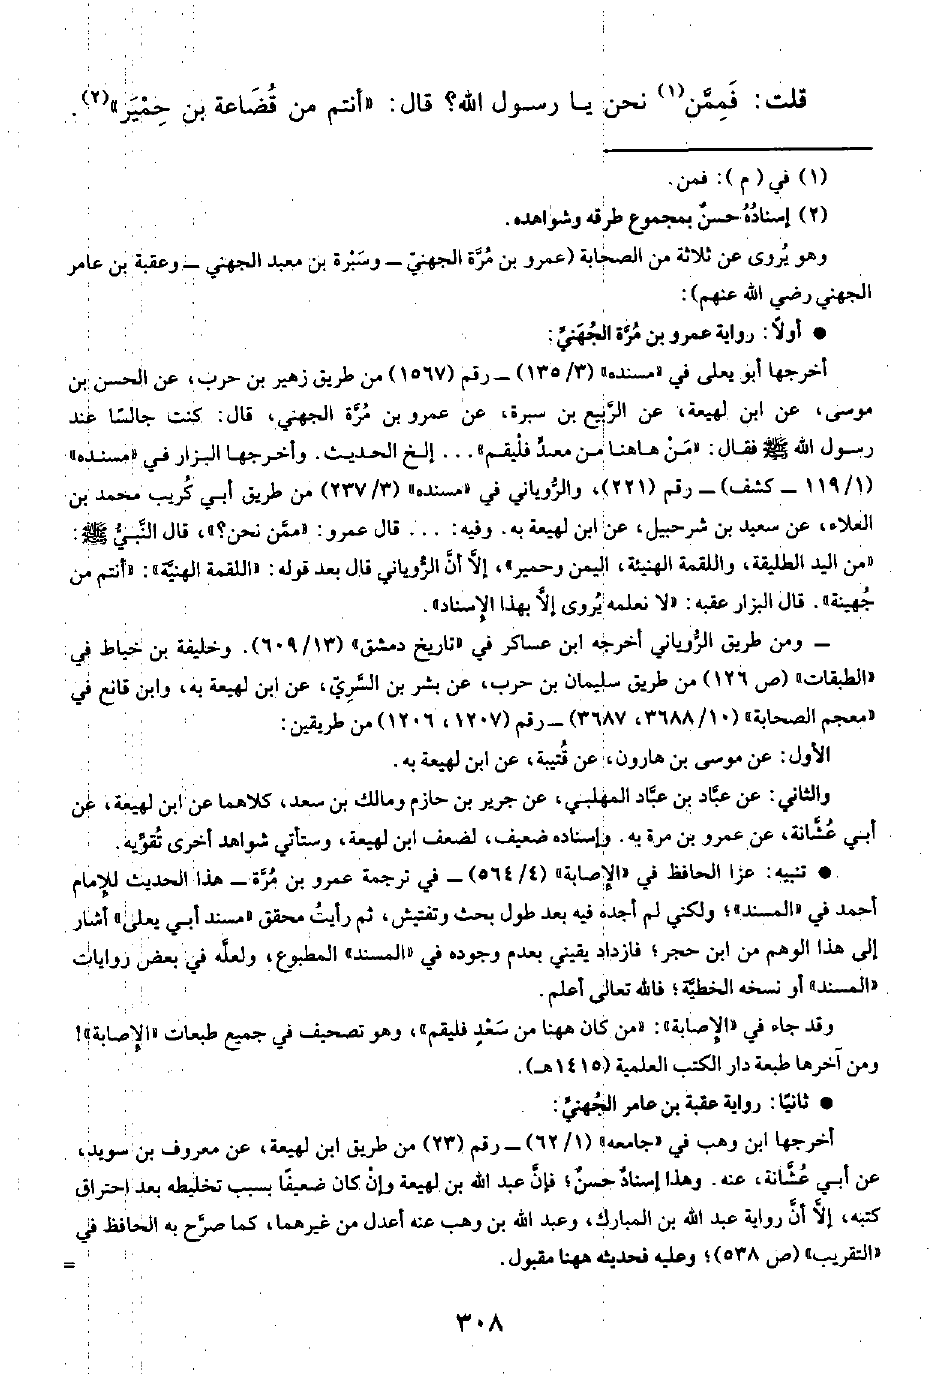 قلت: فَمِمَّن(١) نحن يا رسول الله؟ قال: «أنتم من قُضَاعة بن حِمْيَر»(٢).
(١) في ( م ): فمن.
(٢) إسنادُهُ حسنٌ بمجموع طرقه وشواهده.
وهو يُروى عن ثلاثة من الصحابة (عمرو بن مُرَّة الجهنيّ ــ وسَبْرة بن معبد الجهني ــ وعقبة بن عامر
الجهني رضي الله عنهم):
● أولاً: رواية عمرو بن مُرَّة الجُهَنيِّ:
أخرجها أبو يعلى في «مسنده» (٣/ ١٣٥) ــ رقم (١٥٦٧) من طريق زهير بن حرب، عن الحسن بن
موسى، عن ابن لهيعة، عن الرَّبيع بن سبرة، عن عمرو بن مُرَّة الجهني، قال: كنت جالسًا عند
رسول الله ﷺ فقال: «مَنْ هاهنا من معدٍّ فلْيقم» . . . إلخ الحديث. وأخرجها البزار في «مسنده»
(١/ ١١٩ ــ كشف) ــ رقم (٢٢١)، والرُّوياني في «مسنده» (٣/ ٢٣٧) من طريق أبي كُريب محمد بن
العلاء، عن سعيد بن شرحبيل، عن ابن لهيعة به. وفيه: . . . قال عمرو: «ممَّن نحن؟»، قال النَّبيُّ ﷺ:
«من اليد الطليقة، واللقمة الهنيئة، اليمن وحمير»، إلَّا أنَّ الرُّوياني قال بعد قوله: «اللقمة الهنيَّة»: «أنتم من
جُهينة». قال البزار عقبه: «لا نعلمه يُروى إلَّا بهذا الإسناد».
ــ ومن طريق الرُّوياني أخرجه ابن عساكر في «تاريخ دمشق» (١٣/ ٦٠٩). وخليفة بن خياط في
«الطبقات» (ص ١٢٦) من طريق سليمان بن حرب، عن بشر بن السَّريِّ، عن ابن لهيعة به، وابن قانع في
«معجم الصحابة» (١٠/ ٣٦٨٨، ٣٦٨٧) ــ رقم (١٢٠٧، ١٢٠٦) من طريقين:
الأول: عن موسى بن هارون، عن قُتيبة، عن ابن لهيعة به.
والثاني: عن عبَّاد بن عبَّاد المهلبي، عن جرير بن حازم ومالك بن سعد، كلاهما عن ابن لهيعة، عن
أبي عُشَّانة، عن عمرو بن مرة به. وإسناده ضعيف، لضعف ابن لهيعة، وستأتي شواهد أخرى تُقوِّيه.
● تنبيه: عزا الحافظ في «الإصابة» (٤/ ٥٦٤) ــ في ترجمة عمرو بن مُرَّة ــ هذا الحديث للإمام
أحمد في «المسند»؛ ولكني لم أجده فيه بعد طول بحث وتفتيش، ثم رأيتُ محقق «مسند أبي يعلى» أشار
إلى هذا الوهم من ابن حجر؛ فازداد يقيني بعدم وجوده في «المسند» المطبوع، ولعلَّه في بعض روايات
«المسند» أو نسخه الخطيَّة؛ فالله تعالى أعلم.
وقد جاء في «الإصابة»: «من كان ههنا من سَعْدٍ فليقم»، وهو تصحيف في جميع طبعات «الإصابة»!
ومن آخرها طبعة دار الكتب العلمية (١٤١٥هـ).
● ثانيًا: رواية عقبة بن عامر الجُهنيِّ:
أخرجها ابن وهب في «جامعه» (١/ ٦٢) ــ رقم (٢٣) من طريق ابن لهيعة، عن معروف بن سويد،
عن أبي عُشَّانة، عنه. وهذا إسنادٌ حسنٌ؛ فإنَّ عبد الله بن لهيعة وإنْ كان ضعيفًا بسبب تخليطه بعد احتراق
كتبه، إلَّا أنَّ رواية عبد الله بن المبارك، وعبد الله بن وهب عنه أعدل من غيرهما، كما صرَّح به الحافظ في
«التقريب» (ص ٥٣٨)؛ وعليه فحديثه ههنا مقبول.
=
٣٠٨